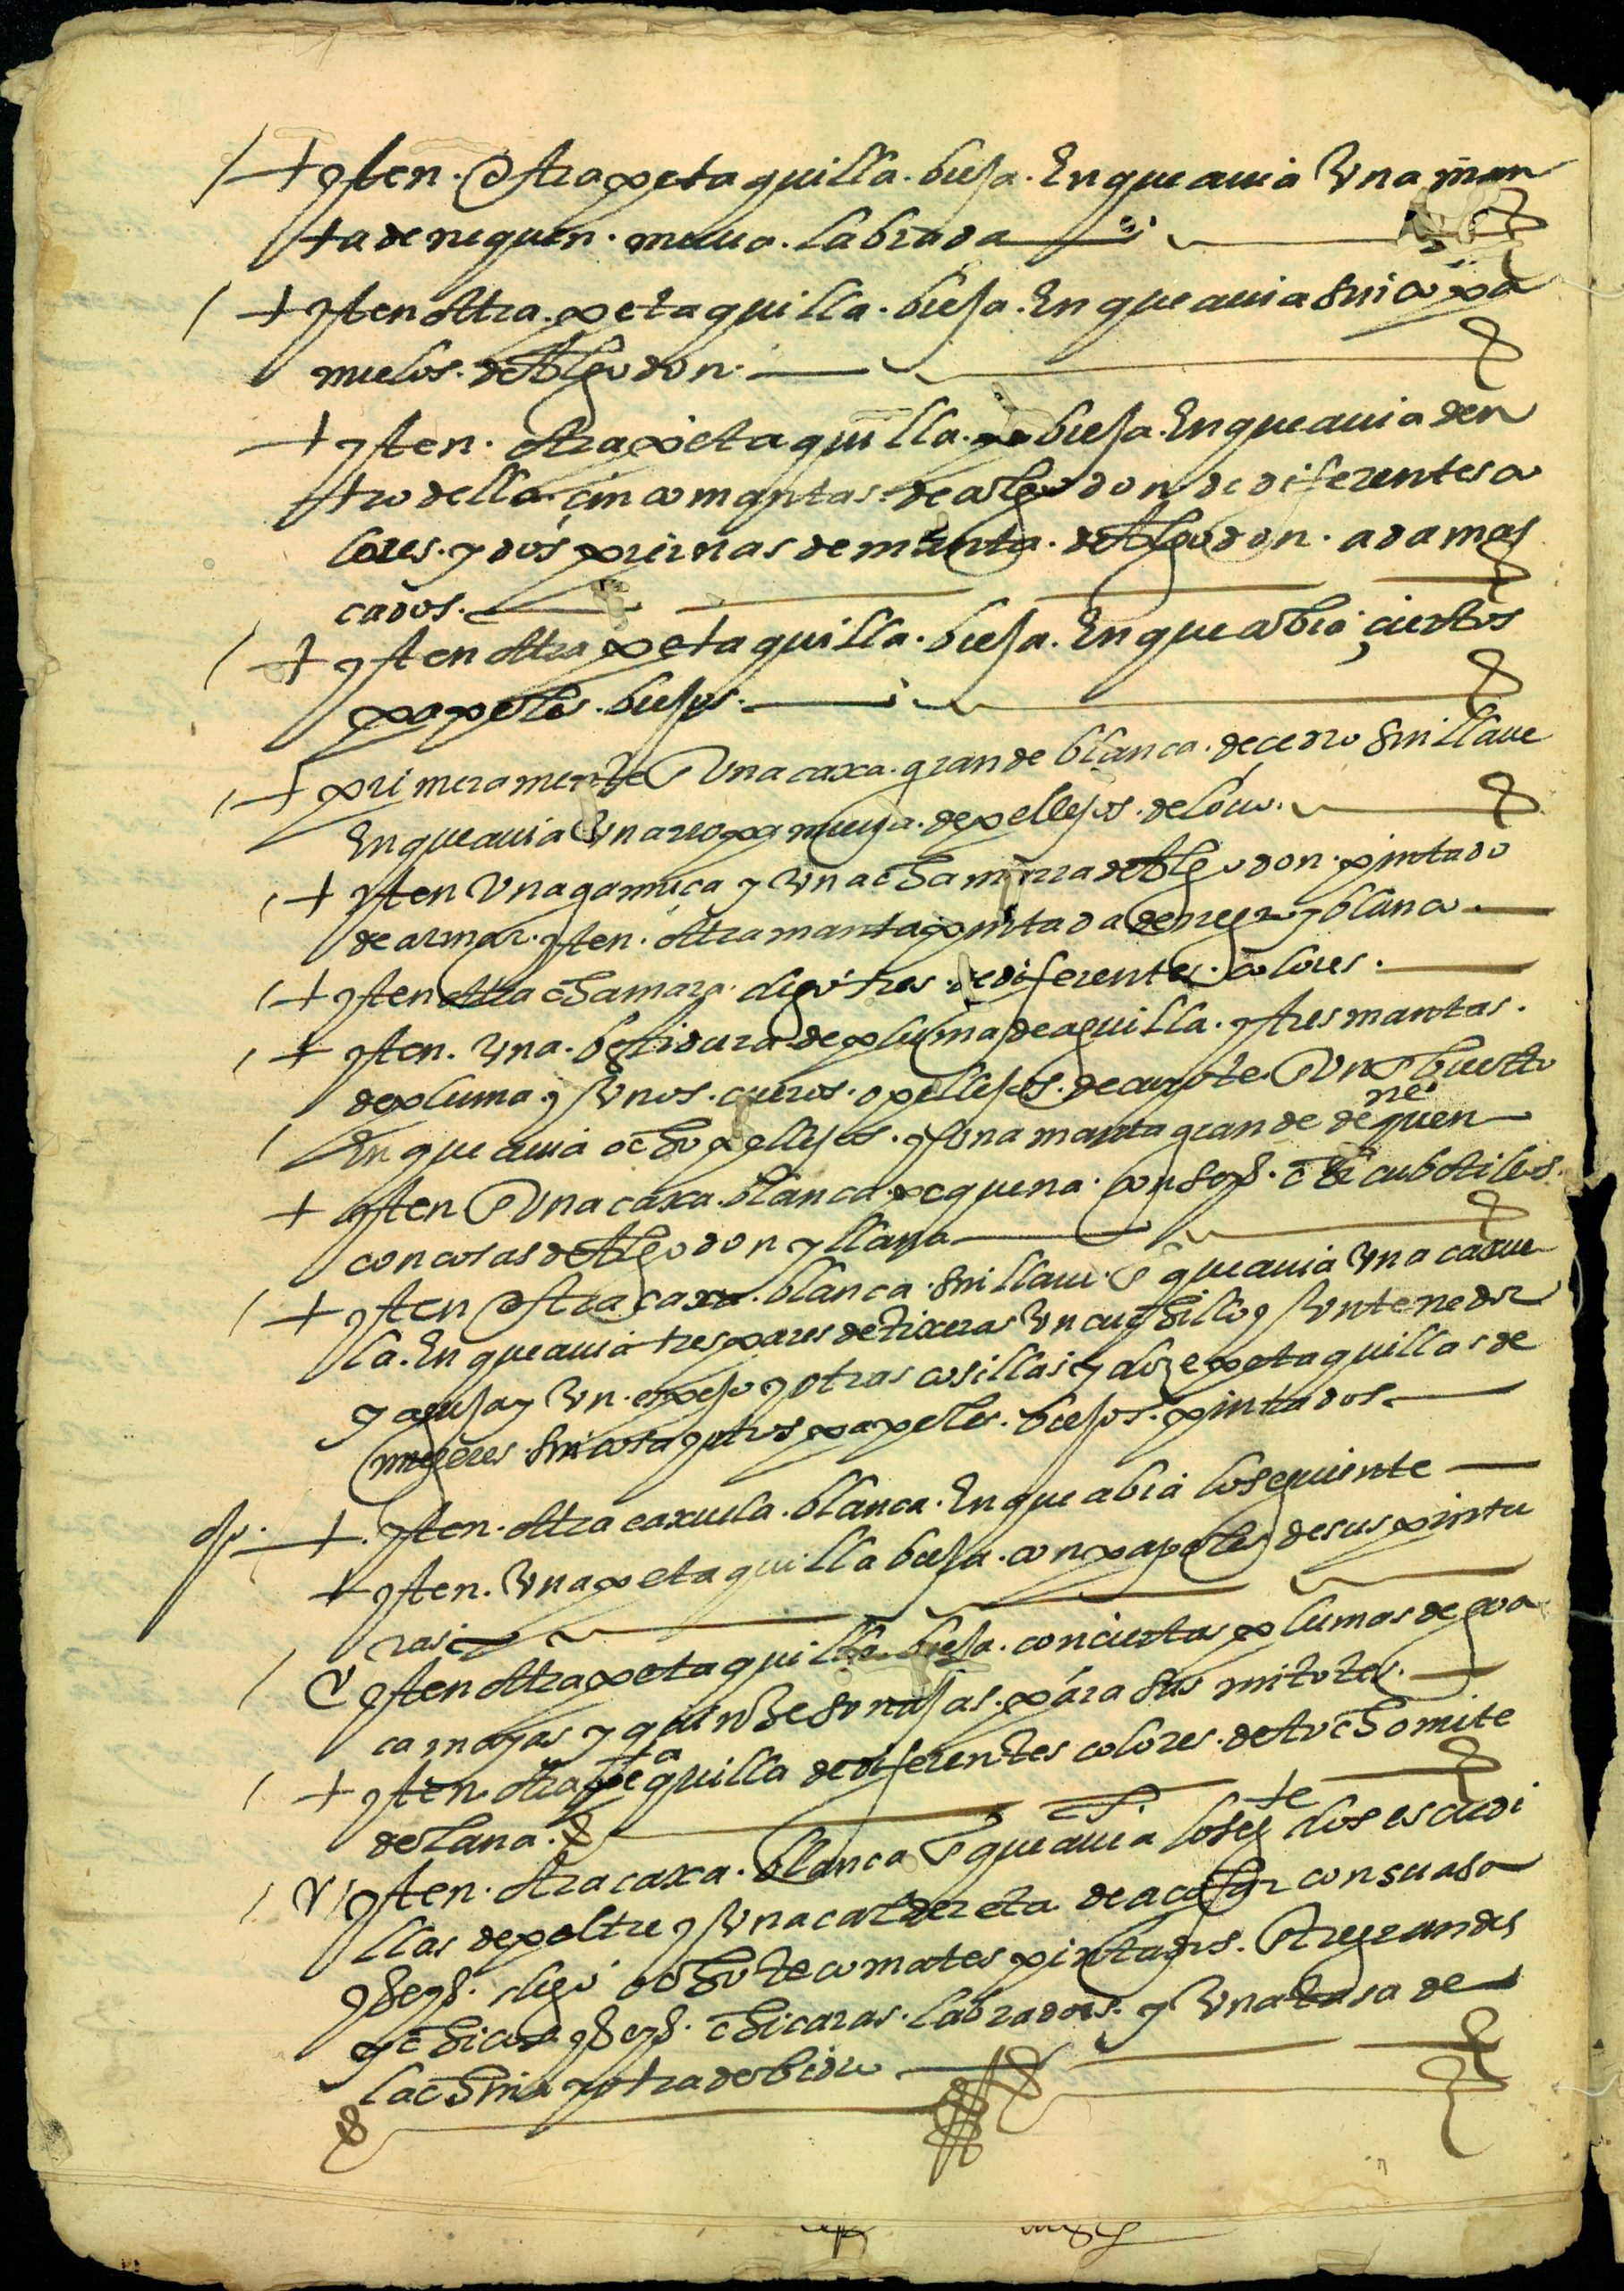 yten. otra petaquilla. bieja. En que auia Vna man
ta de nequen. nueua. labrada
yten otra. petaquilla. bieja. En que auia sinco pa
nuelos. de Algodon.
yten. otra petaquilla. bieja. En que auia den
tro della. çinco mantas. de algodon de diferentes co
lores. y dos piernas de manta. de Algodon. adamas
cados.
yten otra petaquilla. bieja. En que abia çiertos
papeles. biejos.
primeramente Vna caxa. grande blanca. de cedro sin llaue
En que auia Vna ropa nueua. de pellejos. de lobo.
yten Vna gamuça y Vna chamarra de Algodon. pintado
de armar. yten. otra manta pintada de negro y blanco.
yten otra chamara. digo tres. de diferentes. colores.
yten. Vna. bestidura de pluma de aguilla. y tres mantas.
de pluma. y Vnos. cueros. o pellejos. de coyote. Vn
En que auia ocho pellejos. y Vna manta grande de nequen
yten Vna caxa. blanca. pequena. con seys. chicubitiles.
con cosas de Algodon y llana
yten otra caxa. blanca. sin llaue. En que auia Vna caxue
la. En que auia tres pares de tixeras Vn cuchillo y Vn tenedor
y aguja y Vn. espejo y otras cosillas y doze petaquillas de
mugeres. sin cosa y otros papeles. biejos. pintados
ojo. yten. otra caxuela. blanca. En que abia lo seguiente
yten. Vna petaquilla bieja. con papeles de sus pintu
ras
yten otra petaquilla bieja. con ciertas plumas de gua
camayas y quinze sonajas. para sus mitotes.
yten. otra petaquilla de diferentes colores. de tochomite
de lana.
yten. otra caxa. blanca En que auia lo sigte dos escudi
llas de peltre y Vna caldereta de açofar con su asa
y seys. digo ocho tecomates pintados. tres grandes
y chicos y seys. chicaras. labradas. y Vna tasa de
la china y otra de bidro